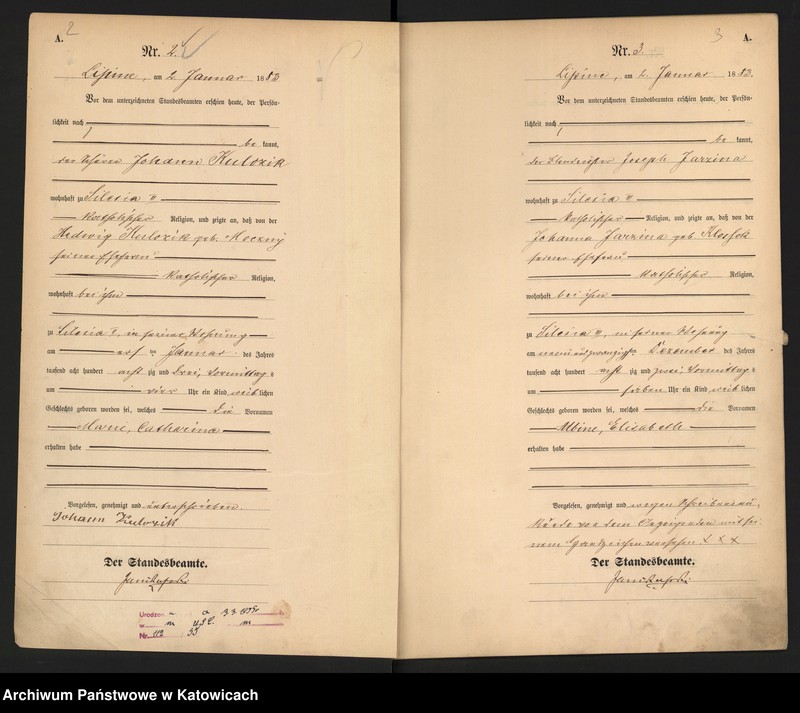 2
A.
Nr. 2.
Lipine, am 2. Januar 1883
Vor dem unterzeichneten Standesbeamten erschien heute, der Persön-
lichkeit nach
be kannt,
der Johann Kulozik
wohnhaft zu Silesia II
katholischer Religion, und zeigte an, daß von der
Hedwig Kulozik geb. Moczny
seiner Ehefrau
katholischer Religion,
wohnhaft bei ihm
zu Silesia II, in seiner Wohnung
am Januar des Jahres
tausend acht hundert acht zig und drei, Vormittags
um vier Uhr ein Kind weib lichen
Geschlechts geboren worden sei, welches die Vornamen
Marie, Catharina
erhalten habe
Vorgelesen, genehmigt und unterschrieben.
Johann Kulozik
Der Standesbeamte.
Urodzon
w m USC. m
Nr.
3
A.
Nr. 3.
Lipine, am 2. Januar 1883.
Vor dem unterzeichneten Standesbeamten erschien heute, der Persön-
lichkeit nach
be kannt,
der Joseph Jarzina
wohnhaft zu Silesia II
katholischer Religion, und zeigte an, daß von der
Johanna Jarzina geb. Klossek
seiner Ehefrau
katholischer Religion,
wohnhaft bei ihm
zu Silesia II, in seiner Wohnung
am neunundzwanzigsten Dezember des Jahres
tausend acht hundert acht zig und zwei, Vormittags
um sieben Uhr ein Kind weib lichen
Geschlechts geboren worden sei, welches die Vornamen
Albine, Elisabeth
erhalten habe
Vorgelesen, genehmigt und wegen Schreibensun-
kunde von dem Anzeigenden mit sei-
nem Handzeichen versehen X X X
Der Standesbeamte.
Archiwum Państwowe w Katowicach